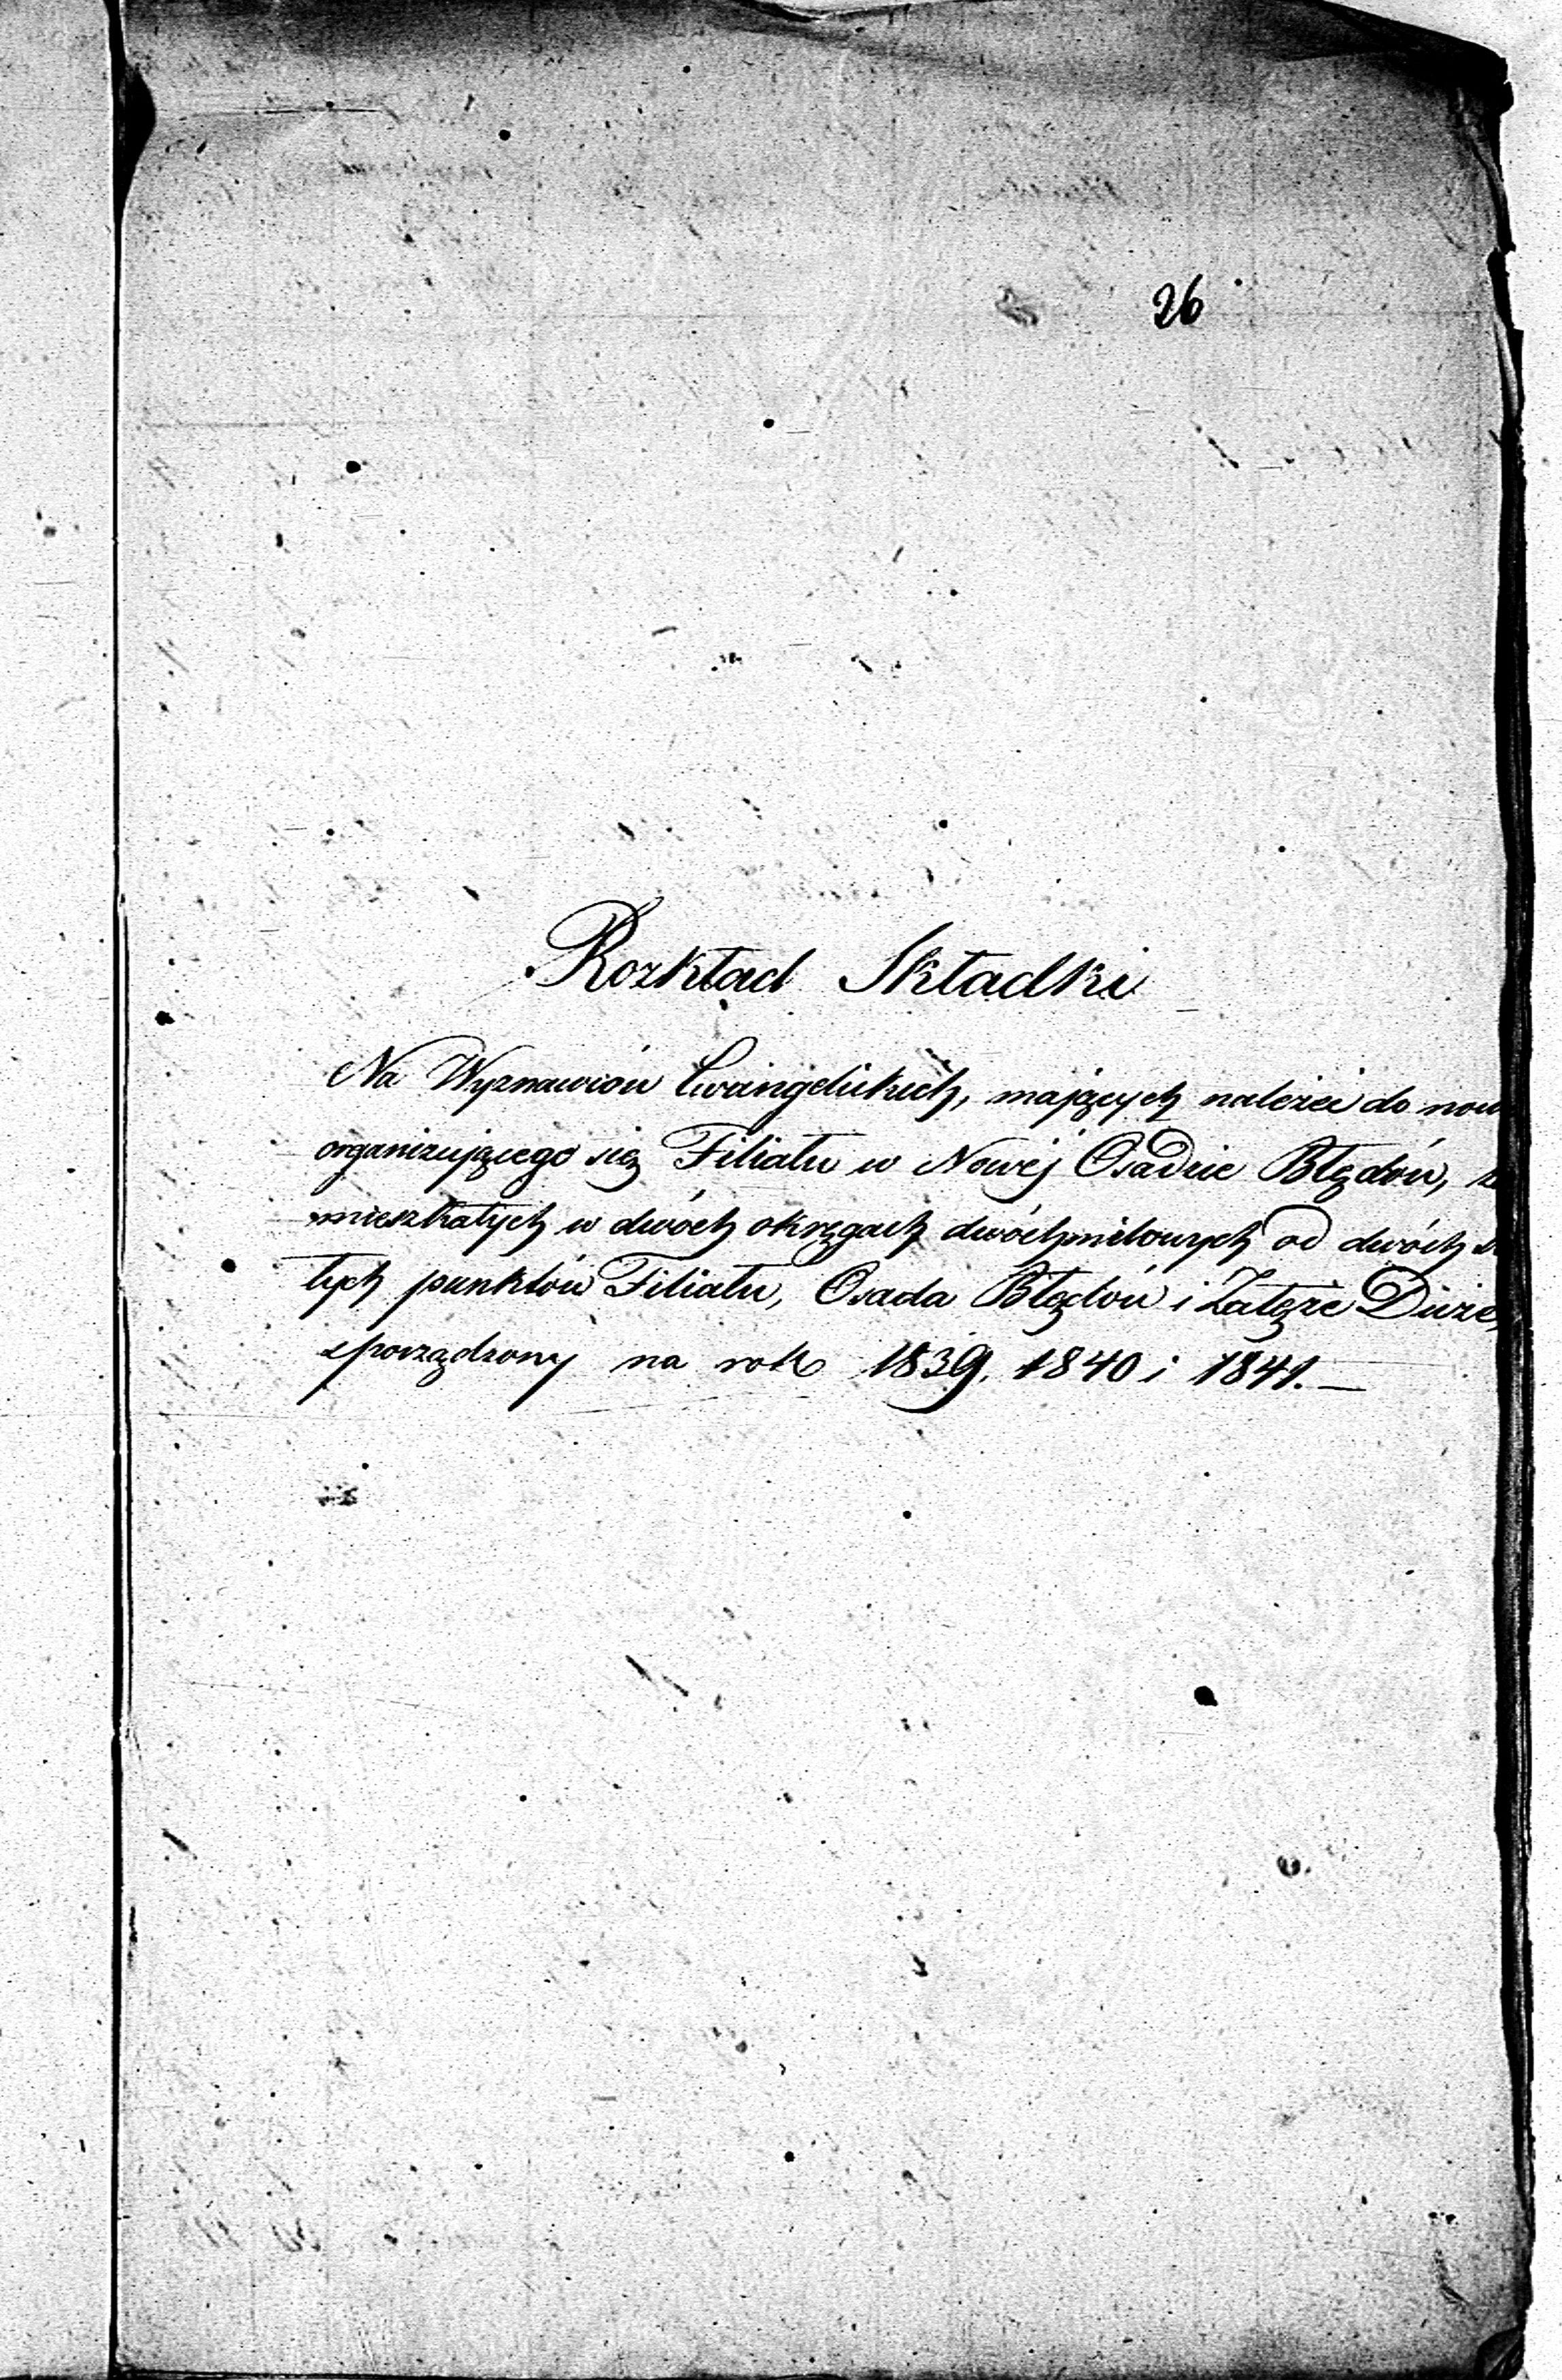 26
Rozkład Składki
Na Wyznawców Ewangelickich, mających należeć do now
organizującego się Filiału w Nowéj Osadzie Błędów, z
mieszkałych w dwóch okręgach dwóchmilowych od dwóch s
łych punktów Filiału, Osada Błędów i Załęże Duże,
sporządzony na rok 1839, 1840 i 1841.—